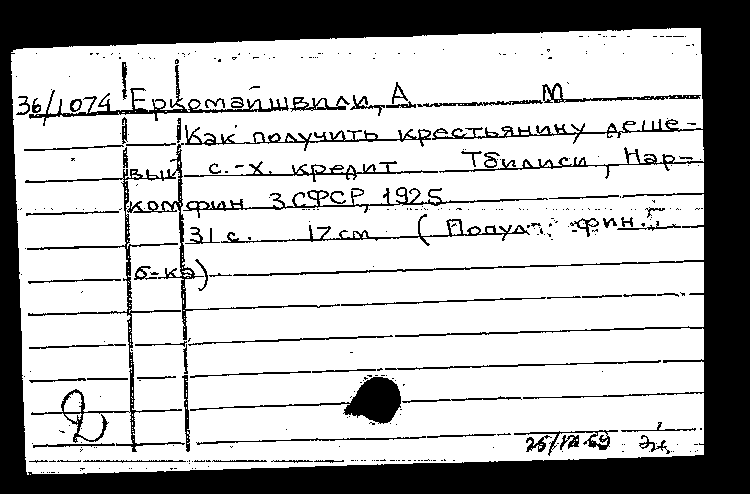 36/1074 Еркомайшвили, А М
Как получить крестьянину деше-
вый с.-х. кредит Тбилиси, Нар-
комфин ЗСФСР, 1925
31 с. 17 см (Попул. фин.
б-ка)
2